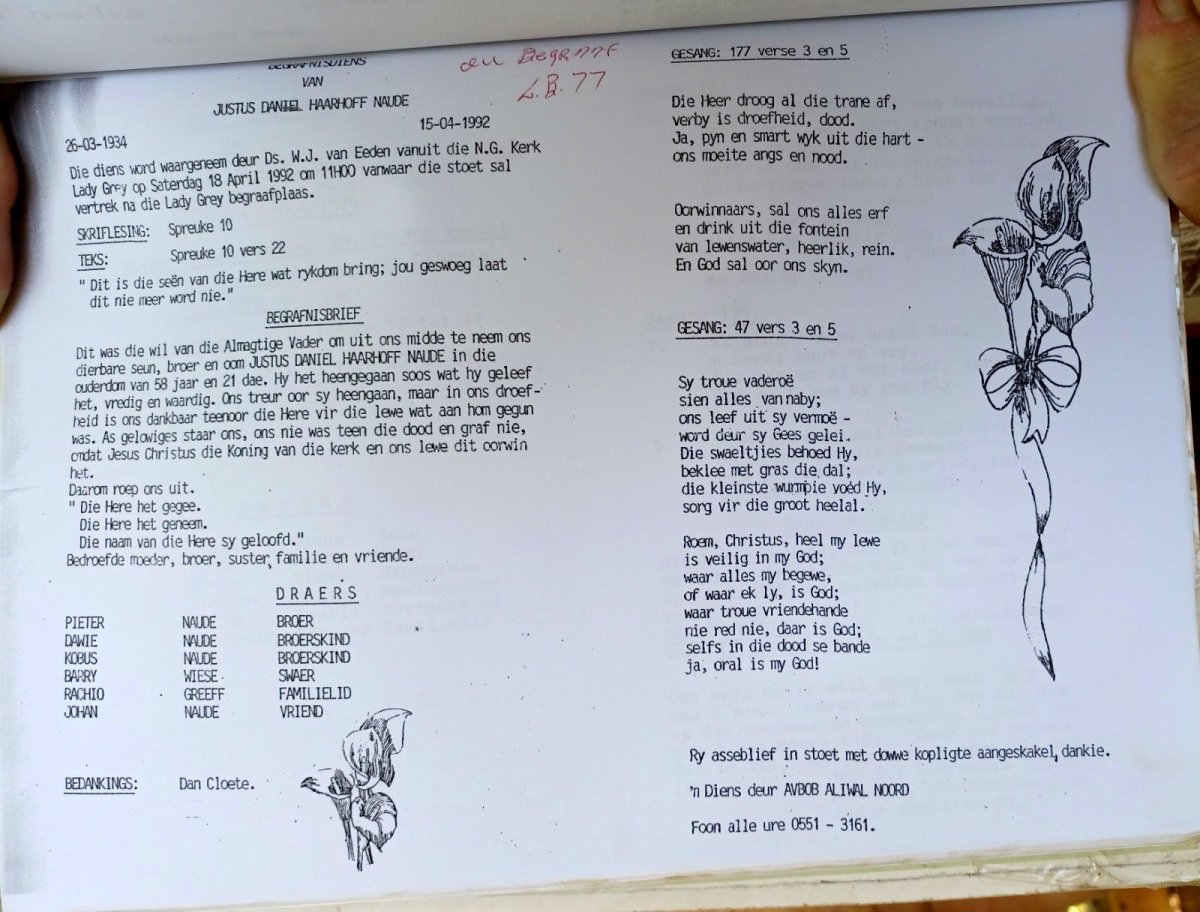 BEGRAFNISDIENS
VAN
JUSTUS DANIEL HAARHOFF NAUDE
26-03-1934
15-04-1992
Die diens word waargeneem deur Ds. W.J. van Eeden vanuit die N.G. Kerk
Lady Grey op Saterdag 18 April 1992 om 11H00 vanwaar die stoet sal
vertrek na die Lady Grey begraafplaas.
SKRIFLESING: Spreuke 10
TEKS: Spreuke 10 vers 22
" Dit is die seën van die Here wat rykdom bring; jou geswoeg laat
dit nie meer word nie."
BEGRAFNISBRIEF
Dit was die wil van die Almagtige Vader om uit ons midde te neem ons
dierbare seun, broer en oom JUSTUS DANIEL HAARHOFF NAUDE in die
ouderdom van 58 jaar en 21 dae. Hy het heengegaan soos wat hy geleef
het, vredig en waardig. Ons treur oor sy heengaan, maar in ons droef-
heid is ons dankbaar teenoor die Here vir die lewe wat aan hom gegun
was. As gelowiges staar ons, ons nie was teen die dood en graf nie,
omdat Jesus Christus die Koning van die kerk en ons lewe dit oorwin
het.
Daarom roep ons uit.
" Die Here het gegee.
Die Here het geneem.
Die naam van die Here sy geloofd."
Bedroefde moeder, broer, suster, familie en vriende.
DRAERS
PIETER NAUDE BROER
DAWIE NAUDE BROERSKIND
KOBUS NAUDE BROERSKIND
BARRY WIESE SWAER
RACHIO GREEFF FAMILIELID
JOHAN NAUDE VRIEND
BEDANKINGS: Dan Cloete.
L.B. 77
GESANG: 177 verse 3 en 5
Die Heer droog al die trane af,
verby is droefheid, dood.
Ja, pyn en smart wyk uit die hart -
ons moeite angs en nood.
Oorwinnaars, sal ons alles erf
en drink uit die fontein
van lewenswater, heerlik, rein.
En God sal oor ons skyn.
GESANG: 47 vers 3 en 5
Sy troue vaderoë
sien alles van naby;
ons leef uit sy vermoë -
word deur sy Gees gelei.
Die swaeltjies behoed Hy,
beklee met gras die dal;
die kleinste wurmpie voed Hy,
sorg vir die groot heelal.
Roem, Christus, heel my lewe
is veilig in my God;
waar alles my begewe,
of waar ek ly, is God;
waar troue vriendehande
nie red nie, daar is God;
selfs in die dood se bande
ja, oral is my God!
Ry asseblief in stoet met dowwe kopligte aangeskakel, dankie.
'n Diens deur AVBOB ALIWAL NOORD
Foon alle ure 0551 - 3161.